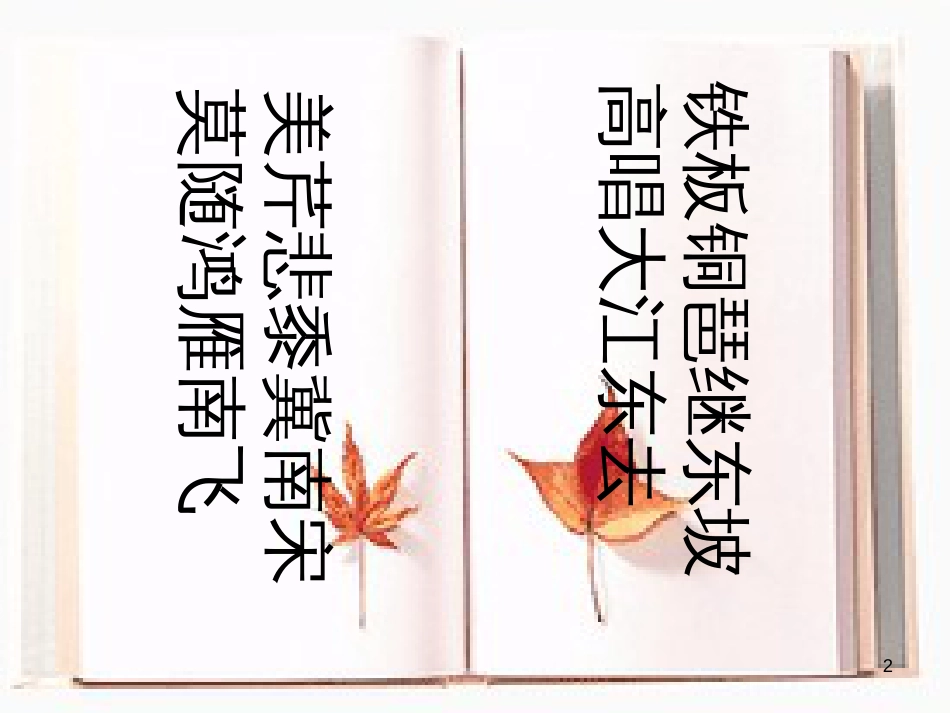 铁板铜琶继东坡
高唱大江东去
美芹悲黍冀南宋
莫随鸿雁南飞
2